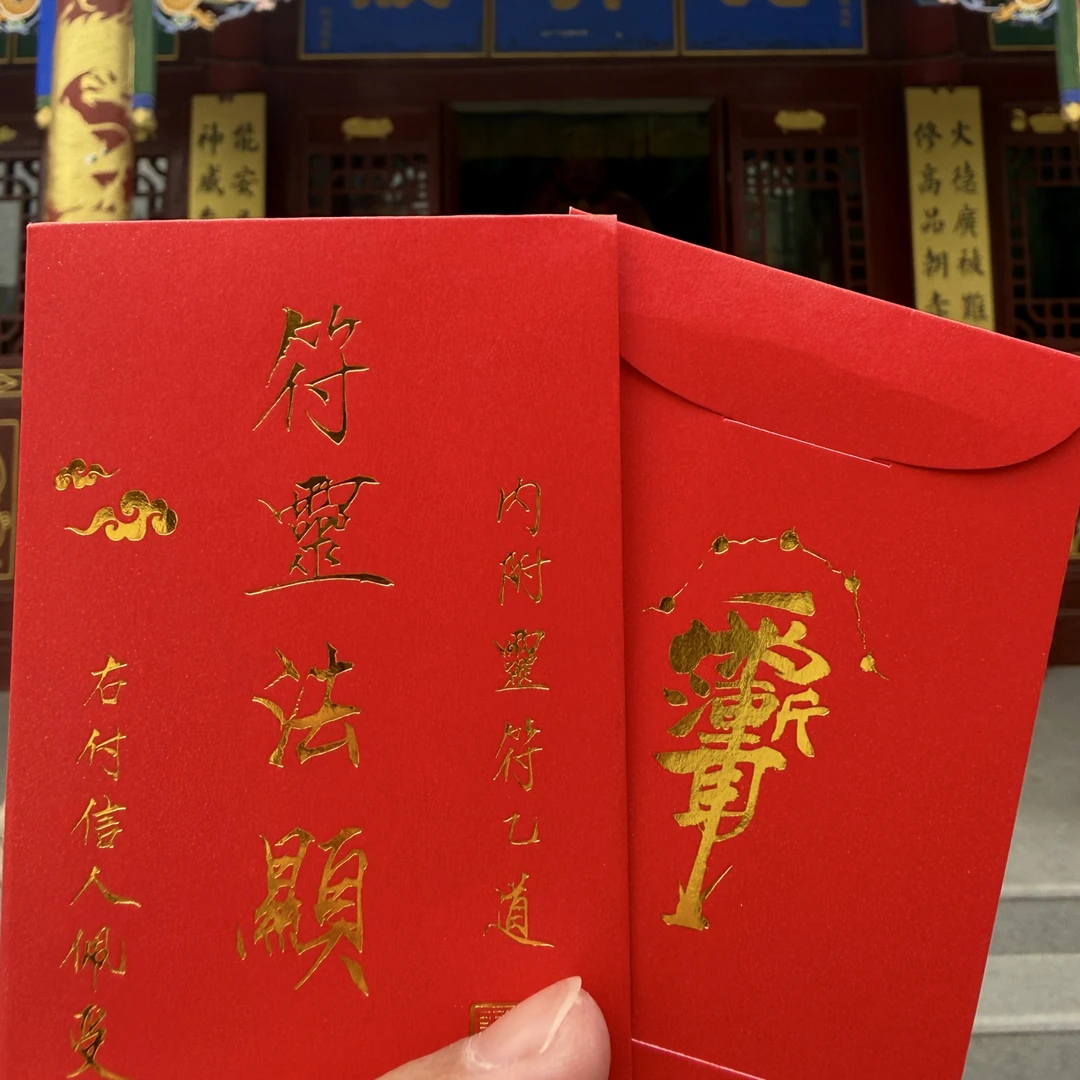 內附靈符乙道
符靈法顯
右付信人佩受
大德廣被
修高品朝
能安
神威